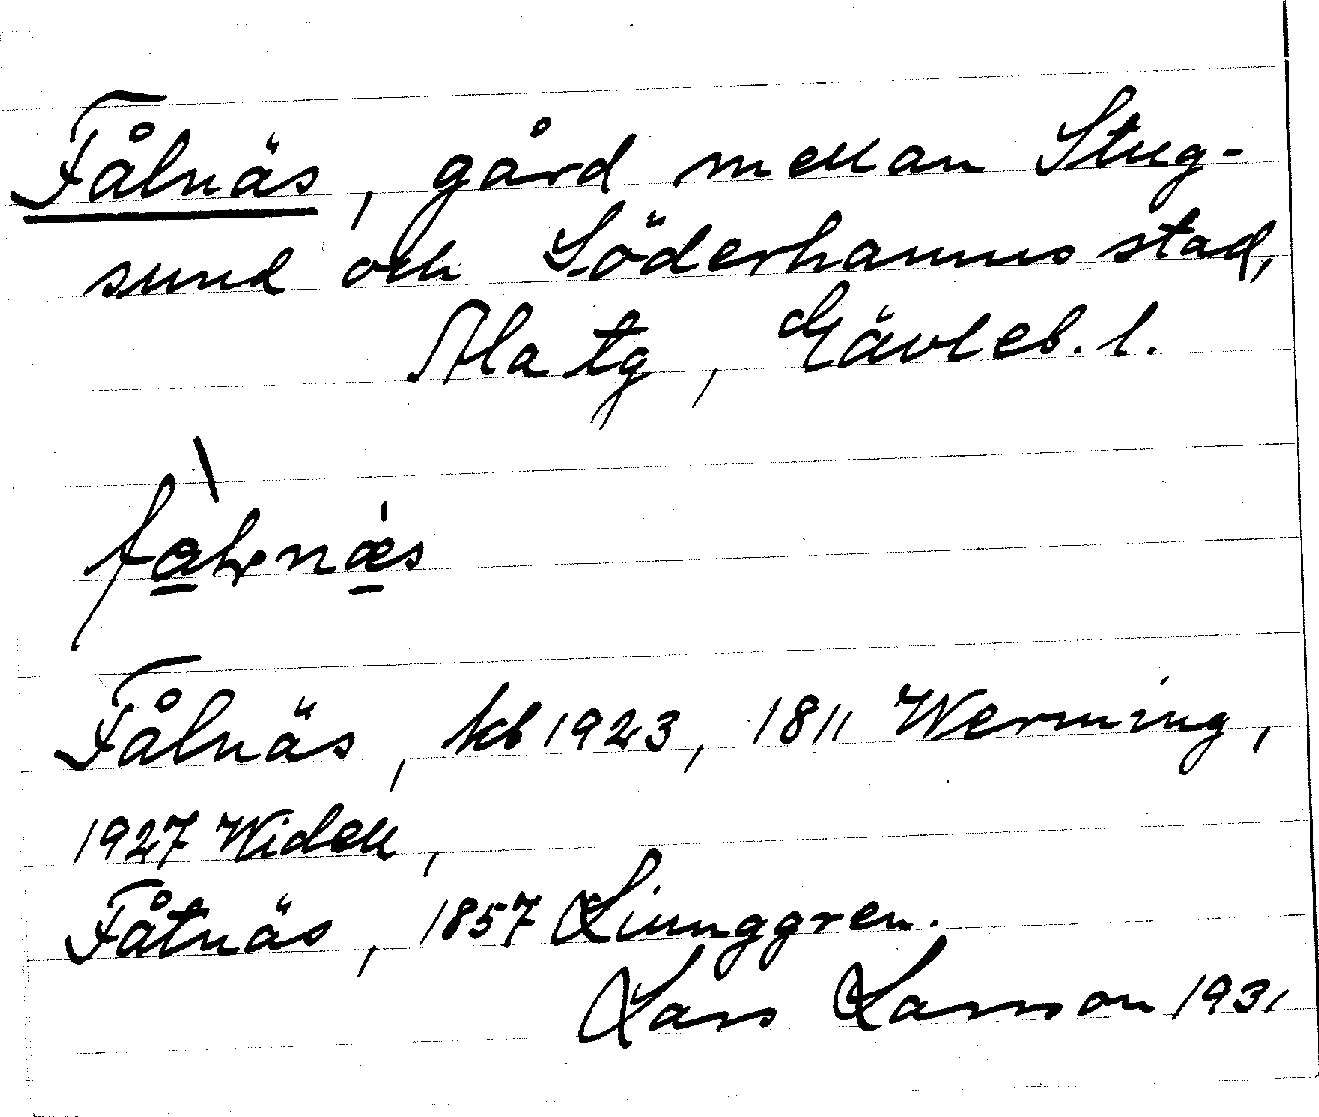 Fålnäs, gård mellan Stug-
sund och Söderhamns stad,
Ala tg, Gävleb. l.
Fålnäs, kb 1923, 1811 Werming,
1927 Widell,
Fåtnäs, 1857 Ljunggren.
Lars Larsson 1931